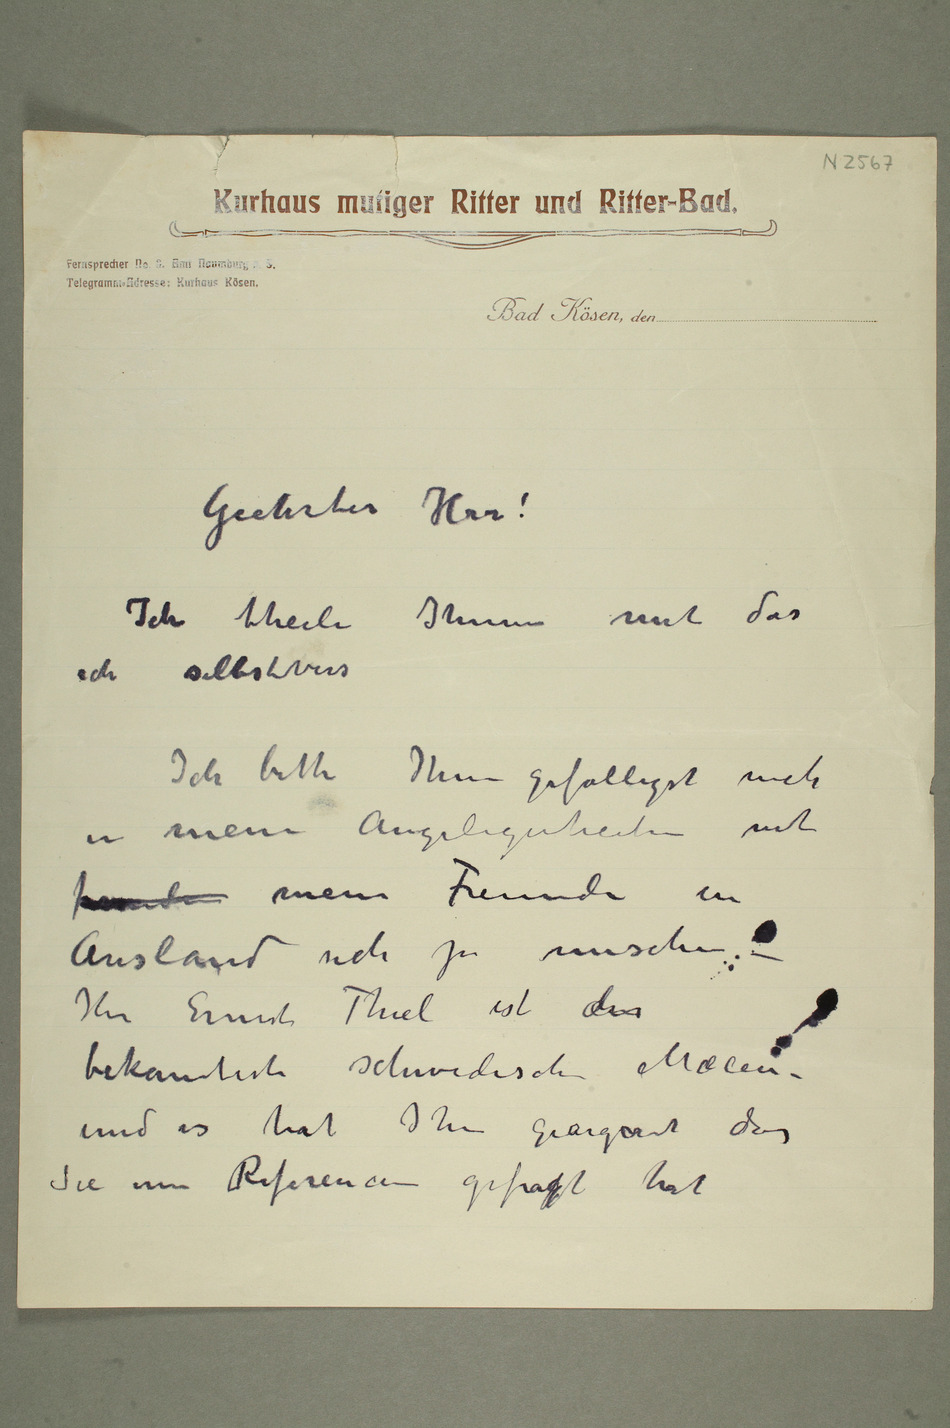 N 2567
Kurhaus mutiger Ritter und Ritter-Bad.
Fernsprecher No. 3. Amt Naumburg a. S.
Telegramm-Adresse: Kurhaus Kösen.
Bad Kösen, den
Geehrter Herr!
Ich theile Ihnen mit das
ich selbstvers
Ich bitte Ihnen gefälligst nich
in meine Angelegenheiten mit
meine Freunde in
Ausland sich zu mischen.
Herr Ernest Thiel ist der
bekannteste schwedische Mæcen
und es hat Ihn geärgert das
Sie um Referencen gefragt hat